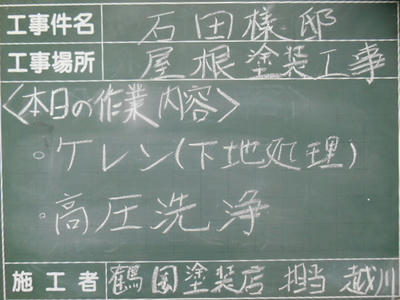 工事件名 石田様邸
工事場所 屋根塗装工事
〈本日の作業内容〉
。ケレン(下地処理)
。高圧洗浄
施工者 鶴園塗装店 担当 越川